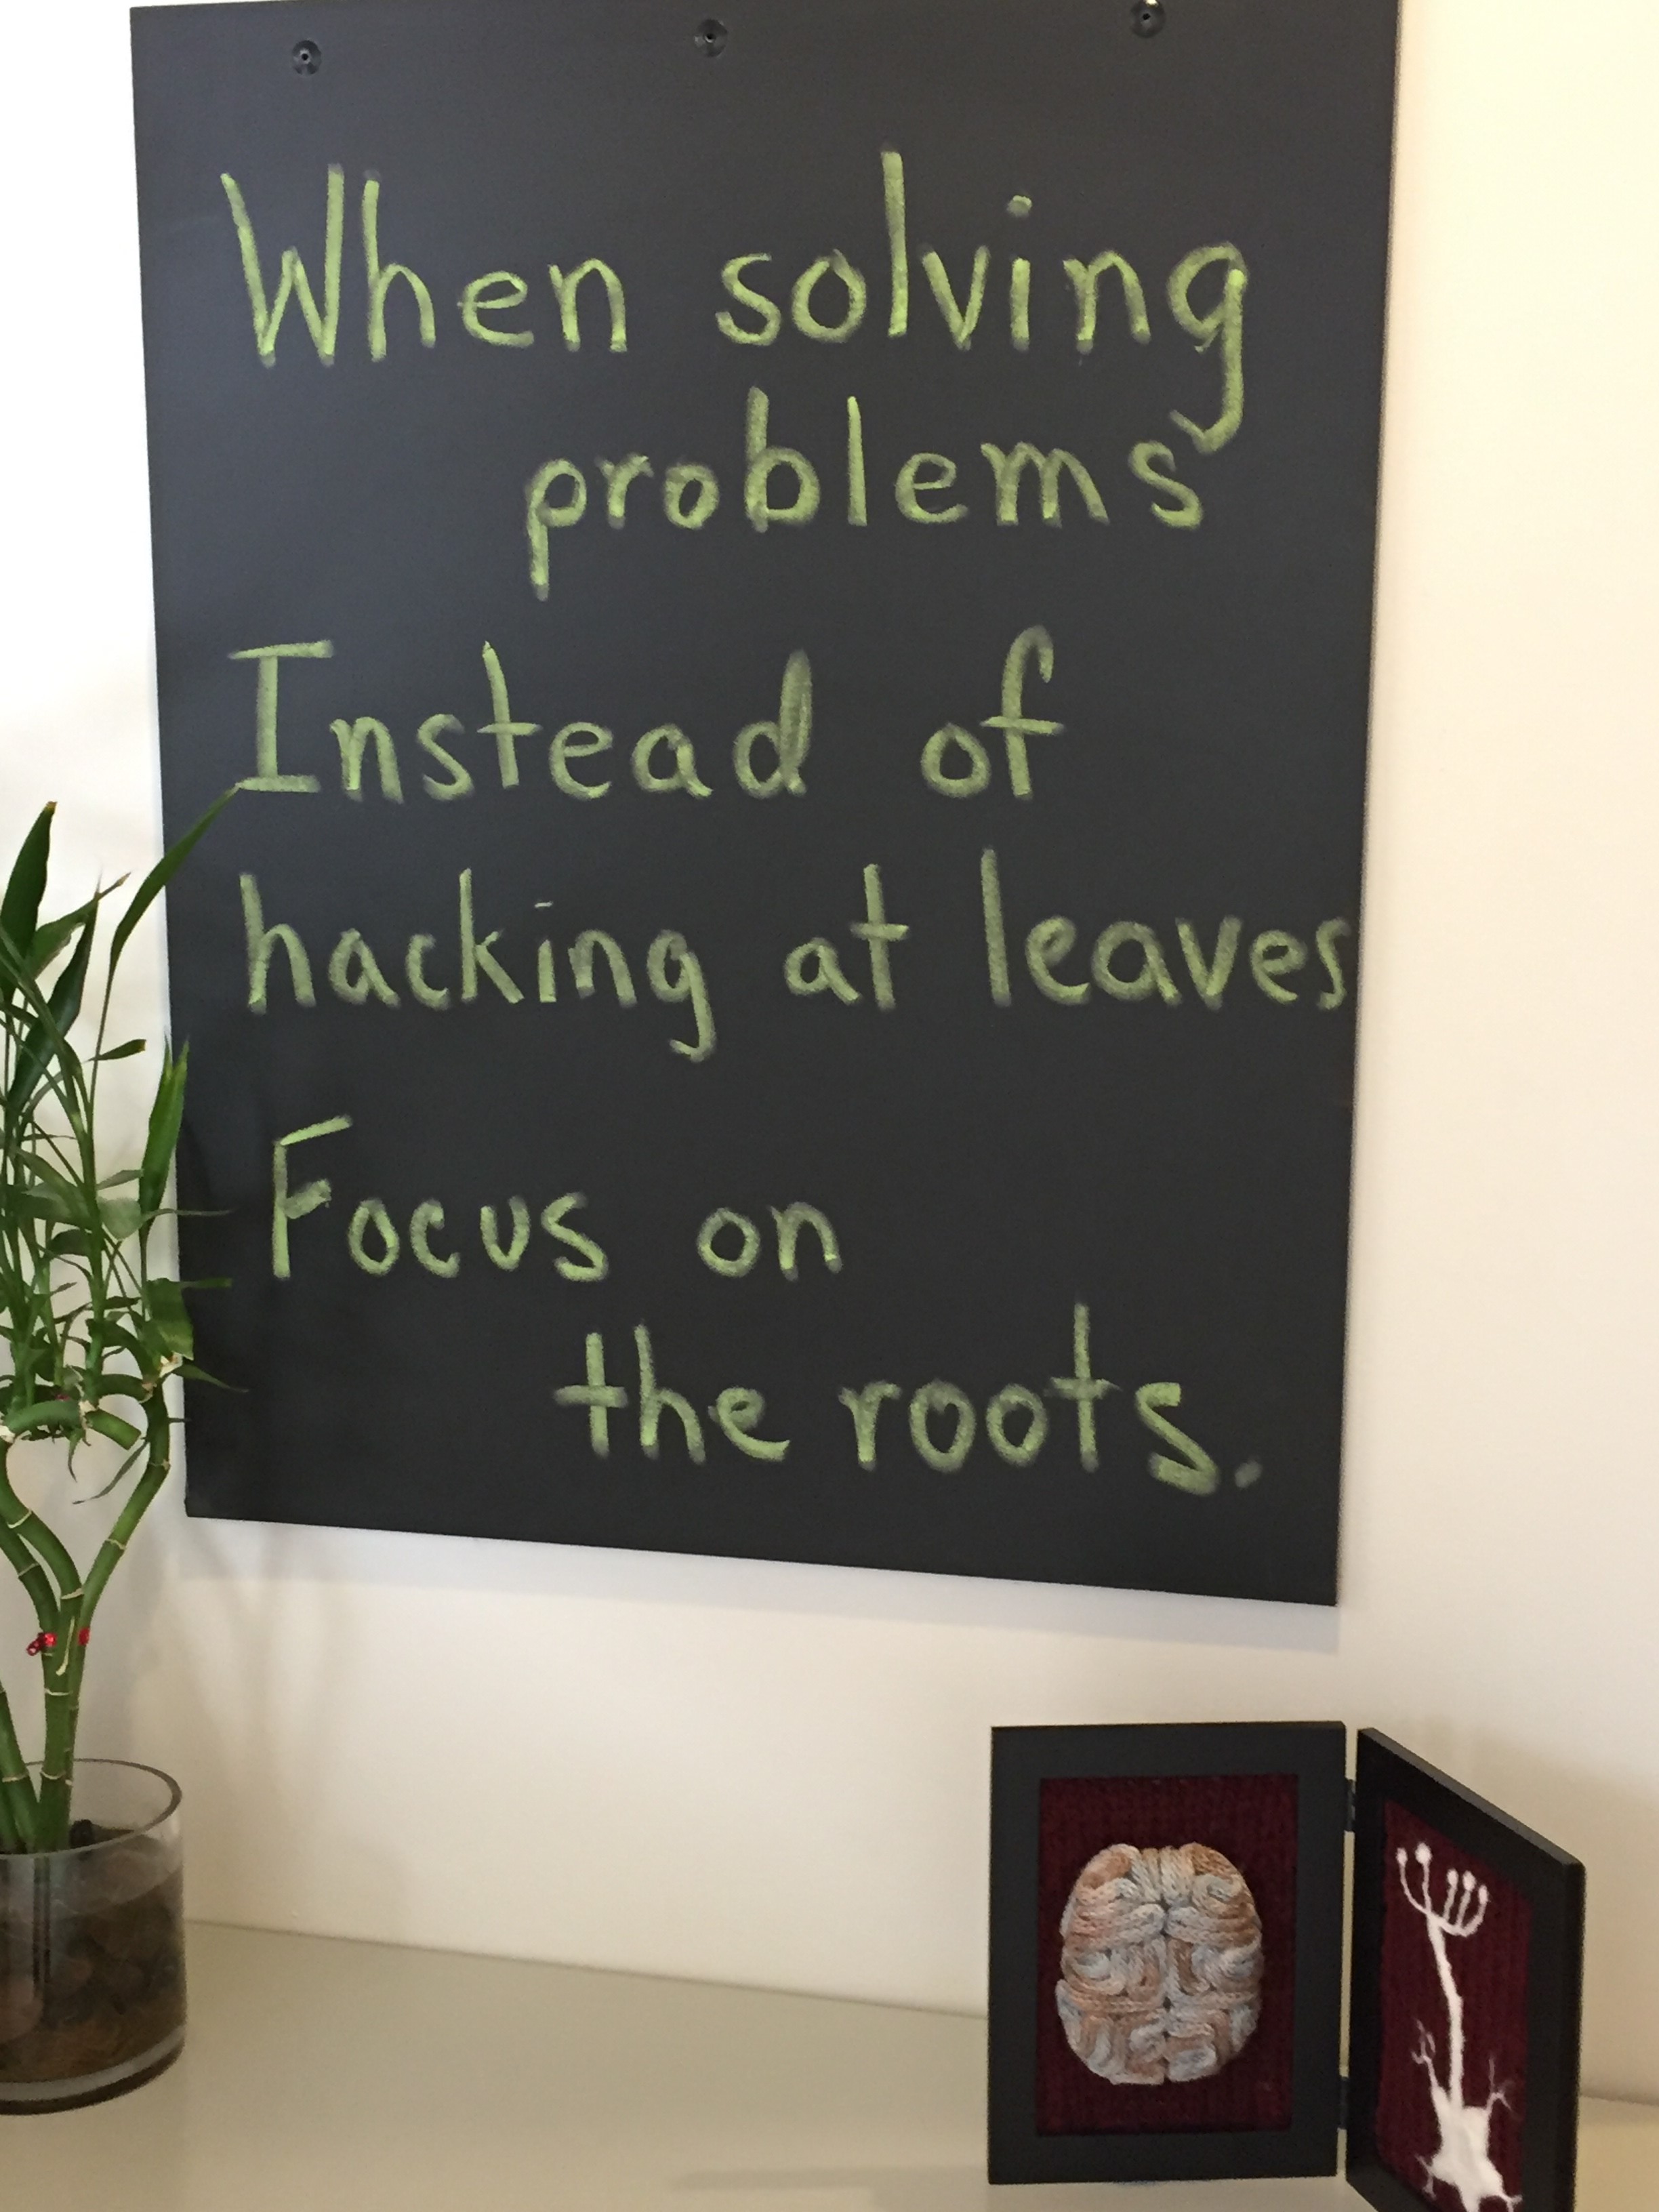 When solving
problems
Instead of
hacking at leaves
Focus on
the roots.